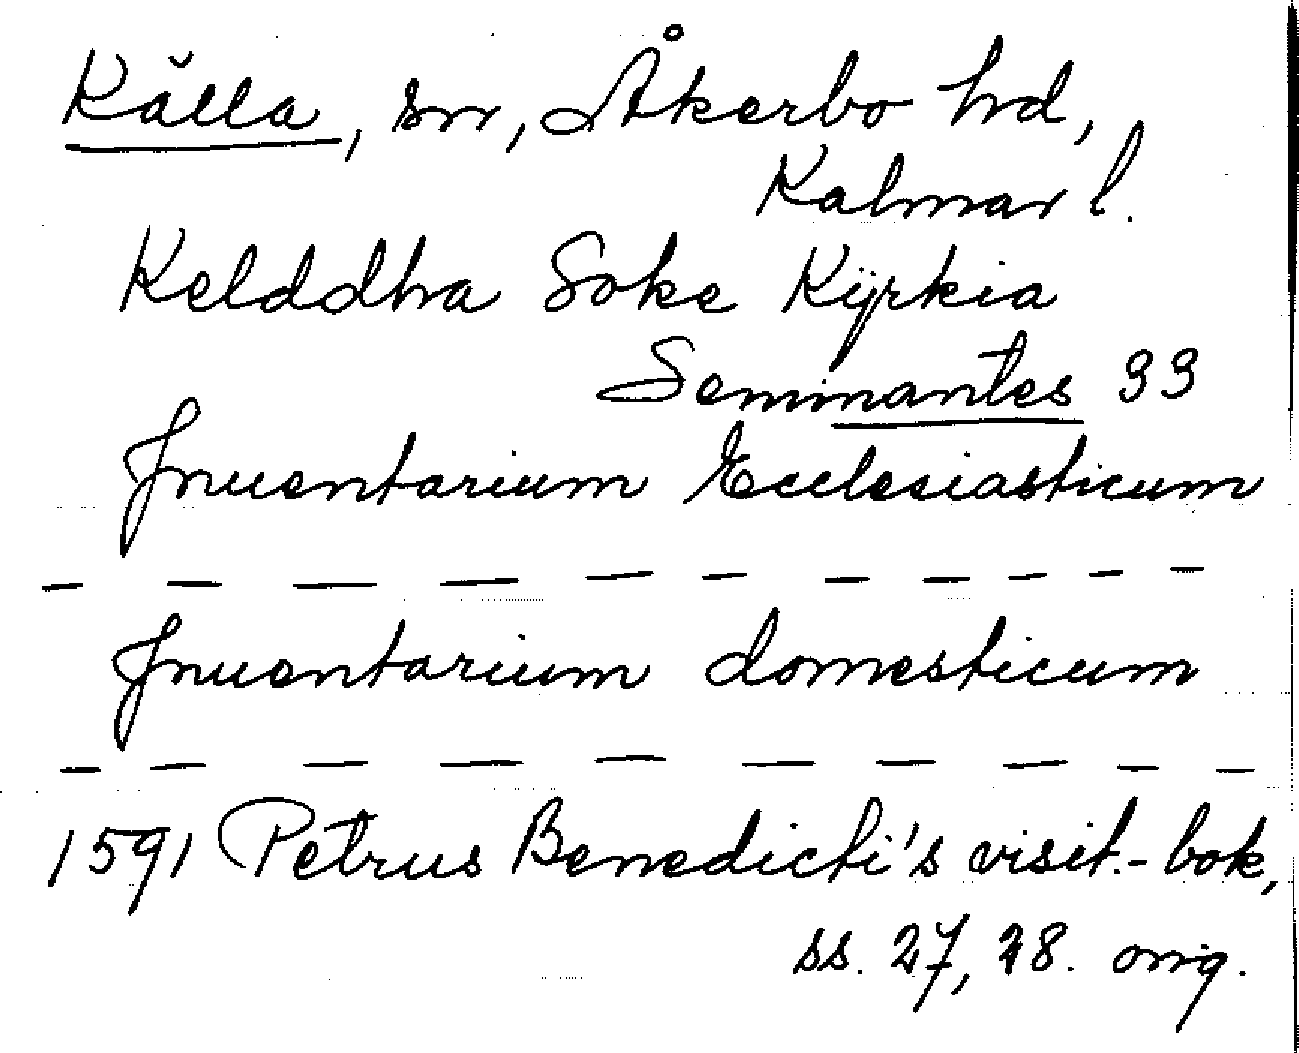 Källa, sn, Åkerbo hd,
Kalmar l.
Kelddha Soke Kÿrkia
Seminantes 33
Inuentarium Ecclesiasticum
— — — — — — — — — —
Inuentarium domesticum
— — — — — — — — — —
1591 Petrus Benedicti's visit.-bok,
ss. 27, 28. orig.